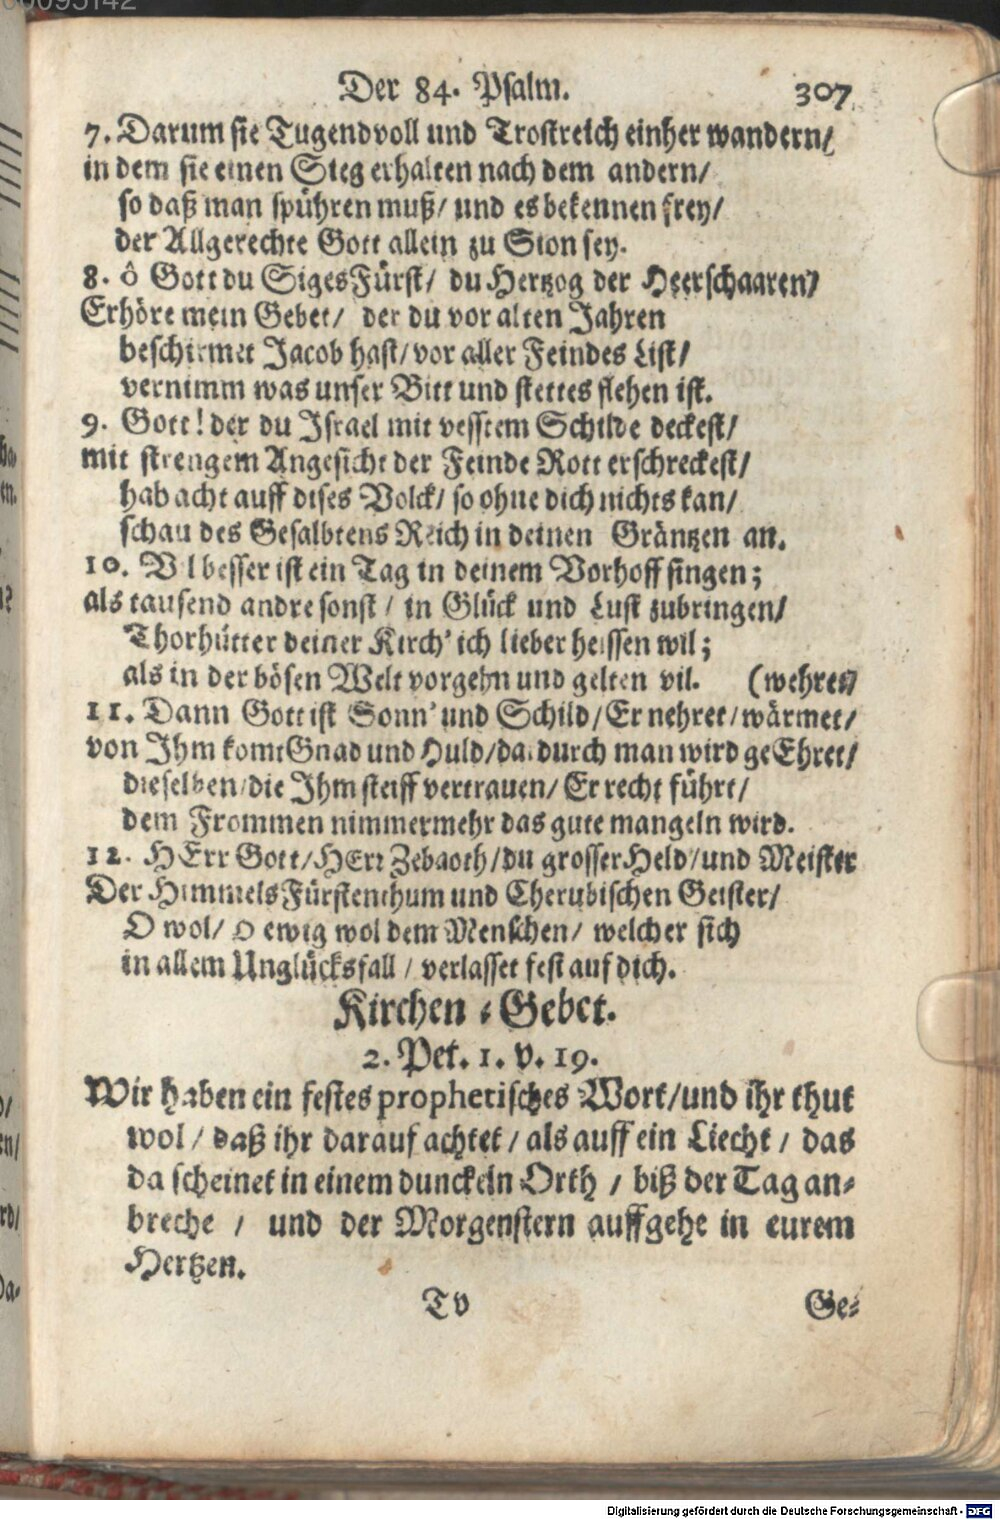 Der 84. Psalm. 307
7. Darum sie Tugendvoll und Trostreich einher wandern/
in dem sie einen Sieg erhalten nach dem andern/
so daß man spühren muß/ und es bekennen frey/
der Allgerechte Gott allein zu Sion sey.
8. ô Gott du SigesFürst/ du Hertzog der Heerschaaren/
Erhöre mein Gebet/ der du vor alten Jahren
beschirmet Jacob hast/ vor aller Feindes List/
vernimm was unser Bitt und stettes flehen ist.
9. Gott! der du Israel mit vesstem Schilde deckest/
mit strengem Angesicht der Feinde Rott erschreckest/
hab acht auff dises Volck/ so ohne dich nichts kan/
schau des Gesalbtens Reich in deinen Gräntzen an.
10. Vil besser ist ein Tag in deinem Vorhoff singen;
als tausend andre sonst / in Glück und Lust zubringen/
Thorhütter deiner Kirch' ich lieber heissen wil;
als in der bösen Welt vorgehn und gelten vil. (wehret/
11. Dann Gott ist Sonn' und Schild/ Er nehret/ wärmet/
von Ihm komt Gnad und Huld/ dadurch man wird geEhret/
dieselben/ die Ihm steiff vertrauen/ Er recht führt/
dem Frommen nimmermehr das gute mangeln wird.
12. HErr Gott/ HErr Zebaoth/ du grosser Held/ und Meister
Der HimmelsFürstenthum und Cherubischen Geister/
O wol/ O ewig wol dem Menschen/ welcher sich
in allem Unglücksfall / verlasset fest auf dich.
Kirchen-Gebet.
2. Pet. 1. v. 19.
Wir haben ein festes prophetisches Wort/ und ihr thut
wol / daß ihr darauf achtet / als auff ein Liecht / das
da scheinet in einem dunckeln Orth / biß der Tag an-
breche / und der Morgenstern auffgehe in eurem
Hertzen.
Tv Ge-
Digitalisierung gefördert durch die Deutsche Forschungsgemeinschaft - DFG